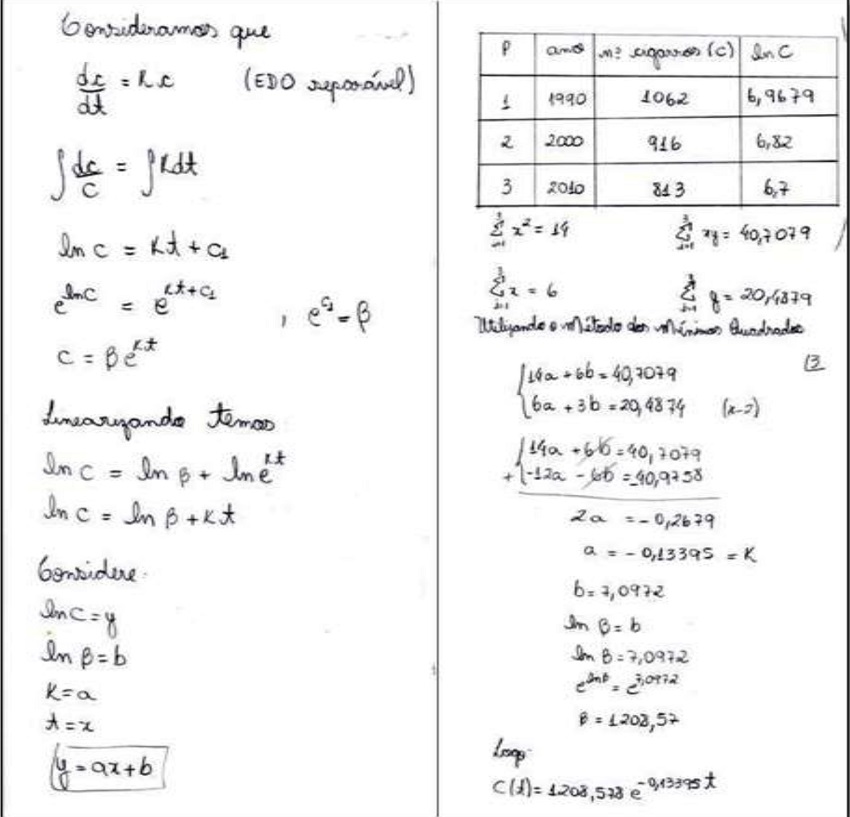 Consideramos que
dc/dt = K.c (EDO separável)
∫ dc/c = ∫ Kdt
ln c = Kt + c₁
e^lnC = e^(Kt+c₁) , e^c₁ = β
C = βe^Kt
Linearizando temos
ln C = ln β + ln e^Kt
ln C = ln β + Kt
Considere.
ln C = y
ln β = b
K = a
t = x
y = ax + b
P ano nº cigarros (C) ln C
1 1990 1062 6,9679
2 2000 916 6,82
3 2010 813 6,7
Σ x² = 14 Σ xy = 40,7079
Σ x = 6 Σ y = 20,4879
Utilizando o Método dos Mínimos Quadrados
(3
14a + 6b = 40,7079
6a + 3b = 20,4879 (x-2)
14a + 6b = 40,7079
+ -12a - 6b = -40,9758
2a = -0,2679
a = -0,13395 = K
b = 7,0972
ln β = b
ln β = 7,0972
e^lnβ = e^7,0972
β = 1208,57
Logo.
C(t) = 1208,578 e^-0,13395t